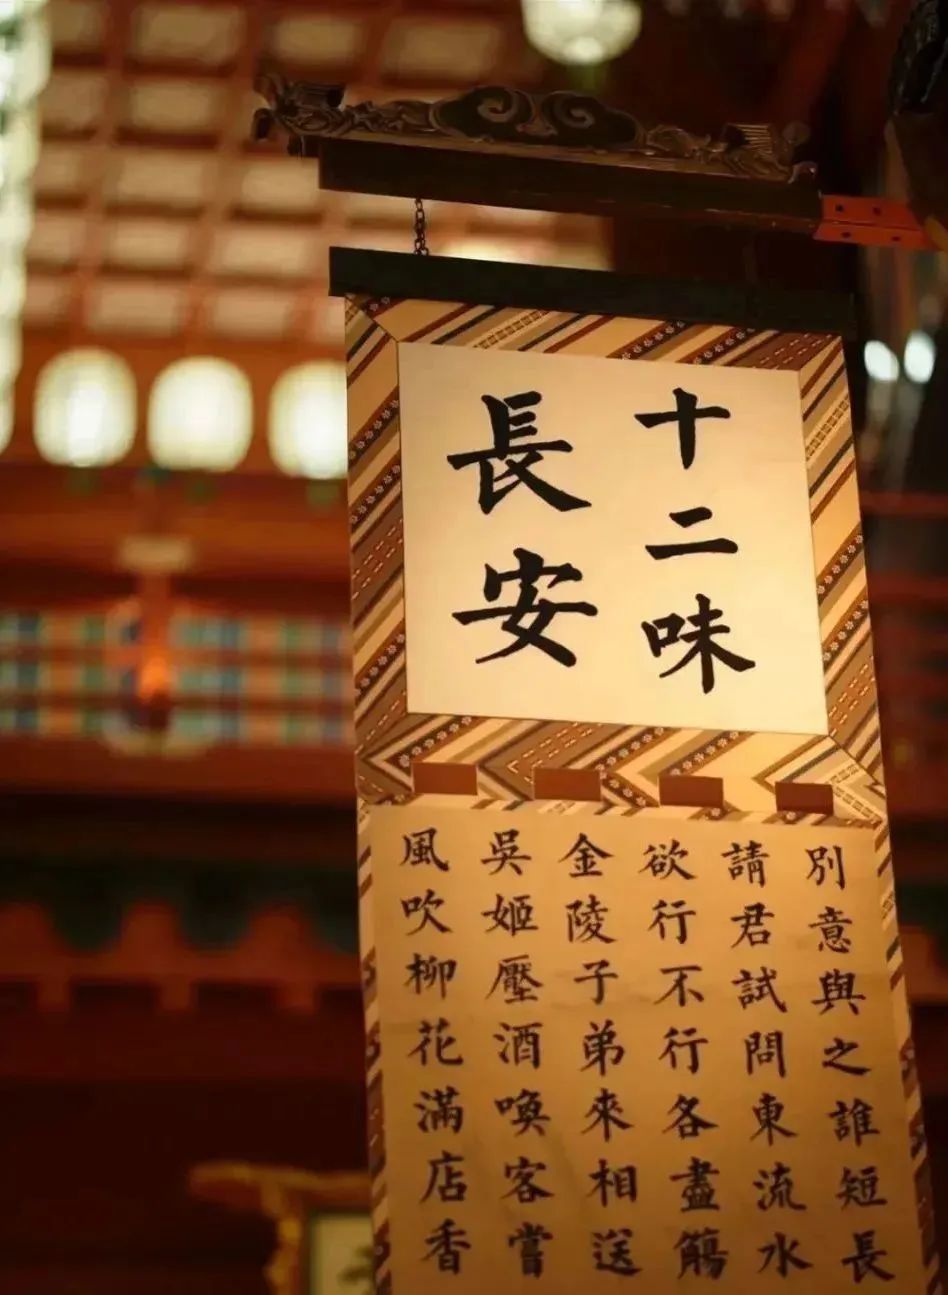 長安
十二味
風吹柳花滿店香
吳姬壓酒喚客嘗
金陵子弟來相送
欲行不行各盡觴
請君試問東流水
別意與之誰短長